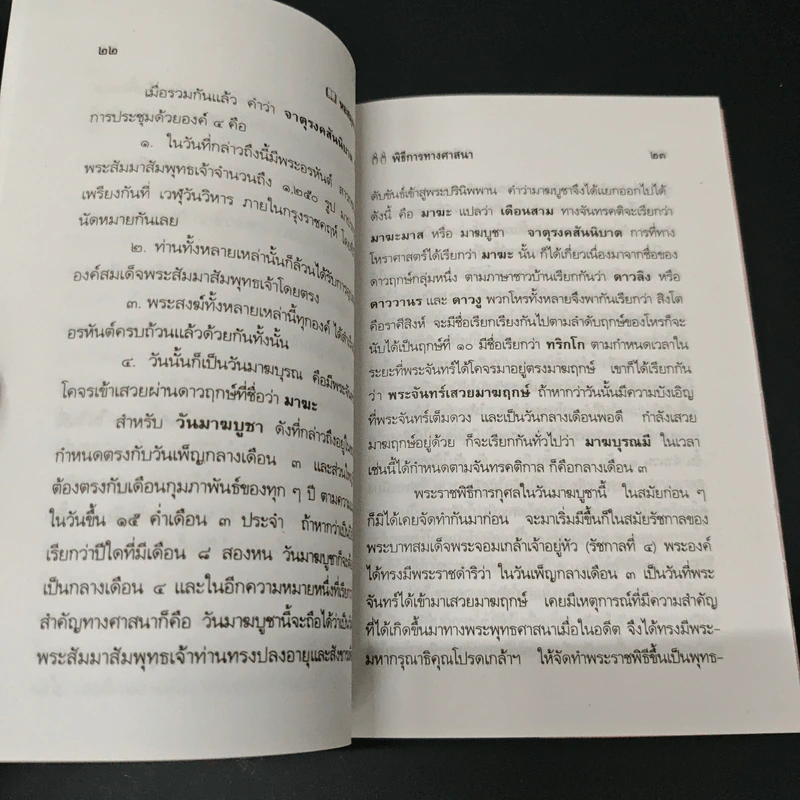 ๒๒
เมื่อรวมกันแล้ว คำว่า จาตุรงคสันนิบาต
การประชุมด้วยองค์ ๔ คือ
๑. ในวันที่กล่าวถึงนี้มีพระอรหันต์
พระสัมมาสัมพุทธเจ้าจำนวนถึง ๑,๒๕๐ รูป
เพรียงกันที่ เวฬุวันวิหาร ภายในกรุงราชคฤห์
นัดหมายกันเลย
๒. ท่านทั้งหลายเหล่านั้นก็ล้วนได้รับการ
องค์สมเด็จพระสัมมาสัมพุทธเจ้าโดยตรง
๓. พระสงฆ์ทั้งหลายเหล่านี้ทุกองค์
อรหันต์ครบถ้วนแล้วด้วยกันทั้งนั้น
๔. วันนั้นก็เป็นวันมาฆบูรณ คือมี
โคจรเข้าเสวยผ่านดาวฤกษ์ที่ชื่อว่า มาฆะ
สำหรับ วันมาฆบูชา ดังที่กล่าวถึงอยู่
กำหนดตรงกับวันเพ็ญกลางเดือน ๓ และส่วน
ต้องตรงกับเดือนกุมภาพันธ์ของทุก ๆ ปี
ในวันขึ้น ๑๕ ค่ำเดือน ๓ ประจำ ถ้าหากว่า
เรียกว่าปีใดที่มีเดือน ๘ สองหน วันมาฆบูชา
เป็นกลางเดือน ๔ และในอีกความหมายหนึ่ง
สำคัญทางศาสนาก็คือ วันมาฆบูชานี้จะถือได้ว่า
พระสัมมาสัมพุทธเจ้าท่านทรงปลงอายุและ
พิธีการทางศาสนา ๒๓
ดับขันธ์เข้าสู่พระปรินิพพาน คำว่ามาฆบูชาจึงได้แยกออกไปได้
ดังนี้ คือ มาฆะ แปลว่า เดือนสาม ทางจันทรคติจะเรียกว่า
มาฆะมาส หรือ มาฆบูชา จาตุรงคสันนิบาต การที่ทาง
โหราศาสตร์ได้เรียกว่า มาฆะ นั้น ก็ได้เกี่ยวเนื่องมาจากชื่อของ
ดาวฤกษ์กลุ่มหนึ่ง ตามภาษาชาวบ้านเรียกกันว่า ดาวลิง หรือ
ดาววานร และ ดาวงู พวกโหรทั้งหลายจึงพากันเรียกว่า สิงโต
คือราศีสิงห์ จะมีชื่อเรียกเรียงกันไปตามลำดับฤกษ์ของโหรก็จะ
นับได้เป็นฤกษ์ที่ ๑๐ มีชื่อเรียกว่า ทริกโก ตามกำหนดเวลาใน
ระยะที่พระจันทร์ได้โคจรมาอยู่ตรงมาฆฤกษ์ เขาก็ได้เรียกกัน
ว่า พระจันทร์เสวยมาฆฤกษ์ ถ้าหากว่าวันนั้นมีความบังเอิญ
ที่พระจันทร์เต็มดวง และเป็นวันกลางเดือนพอดี กำลังเสวย
มาฆฤกษ์อยู่ด้วย ก็จะเรียกกันทั่วไปว่า มาฆบุรณมี ในเวลา
เช่นนี้ได้กำหนดตามจันทรคติกาล ก็คือกลางเดือน ๓
พระราชพิธีการกุศลในวันมาฆบูชานี้ ในสมัยก่อน ๆ
ก็มิได้เคยจัดทำกันมาก่อน จะมาเริ่มมีขึ้นก็ในสมัยรัชกาลของ
พระบาทสมเด็จพระจอมเกล้าเจ้าอยู่หัว (รัชกาลที่ ๔) พระองค์
ได้ทรงมีพระราชดำริว่า ในวันเพ็ญกลางเดือน ๓ เป็นวันที่พระ
จันทร์ได้เข้ามาเสวยมาฆฤกษ์ เคยมีเหตุการณ์ที่มีความสำคัญ
ที่ได้เกิดขึ้นมาทางพระพุทธศาสนาเมื่อในอดีต จึงได้ทรงมีพระ-
มหากรุณาธิคุณโปรดเกล้าฯ ให้จัดทำพระราชพิธีขึ้นเป็นพุทธ-